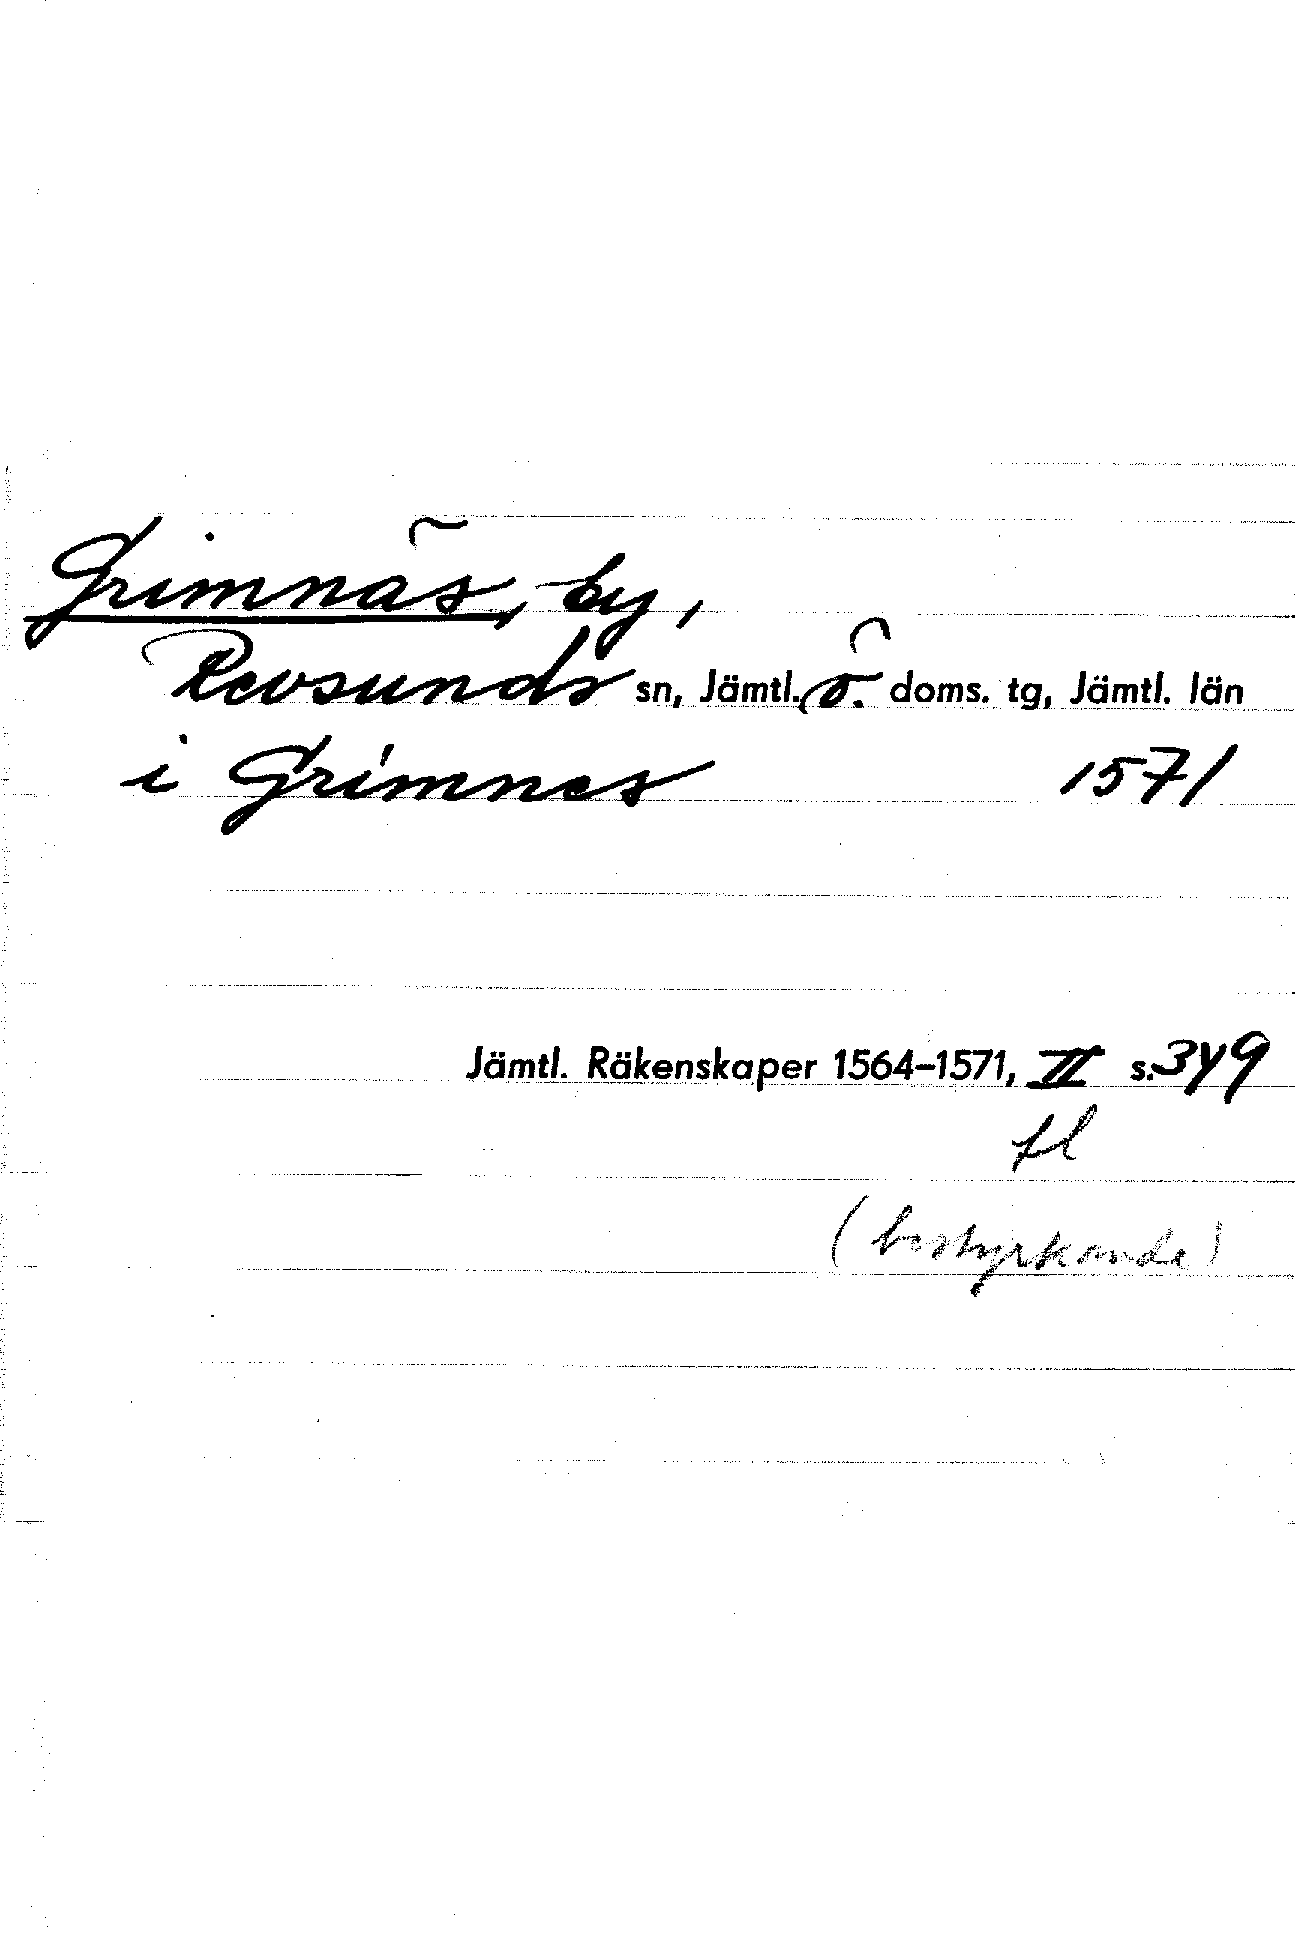 Grimnäs, by,
Revsunds sn, Jämtl. ö. doms. tg, Jämtl. län
i Grimnes 1571
Jämtl. Räkenskaper 1564-1571, II s. 349
fl
(bestyrkande)